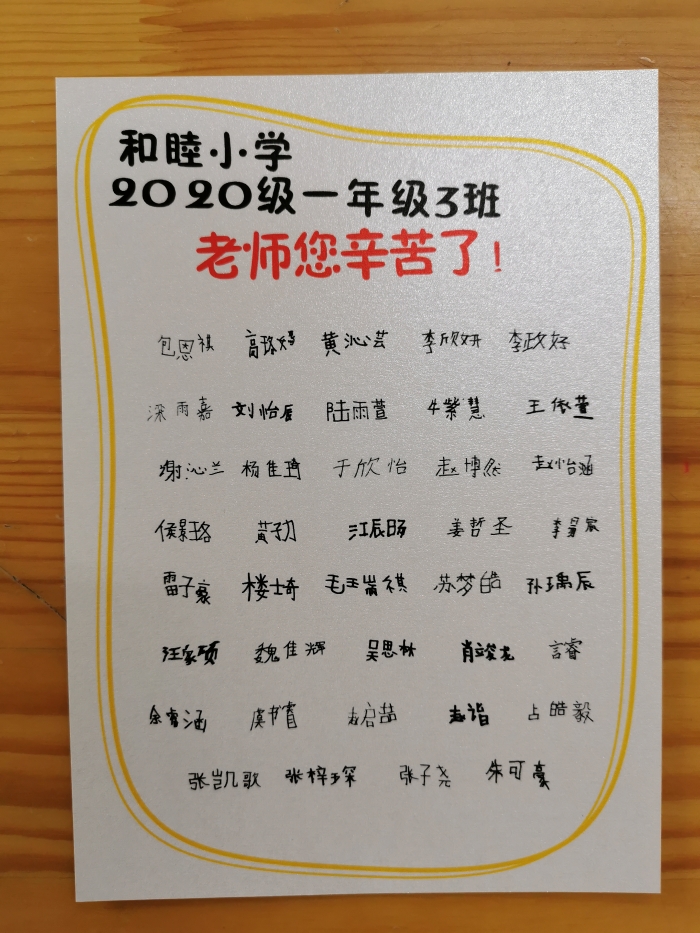 和睦小学
2020级一年级3班
老师您辛苦了!
包恩祺 高 黄沁芸 李欣妍 李政好
梁雨嘉 刘怡辰 陆雨萱 牛紫慧 王依萱
谢沁兰 杨佳琦 于欣怡 赵博然 赵怡涵
侯景珞 黄子 江辰旸 姜哲圣 李昊宸
雷子豪 楼士奇 毛 祺 苏梦皓 孙瑀辰
汪家硕 魏佳辉 吴思林 肖 龙 言睿
余睿涵 虞书睿 赵启喆 赵诣 占皓毅
张凯歌 张梓琛 张子尧 朱可豪